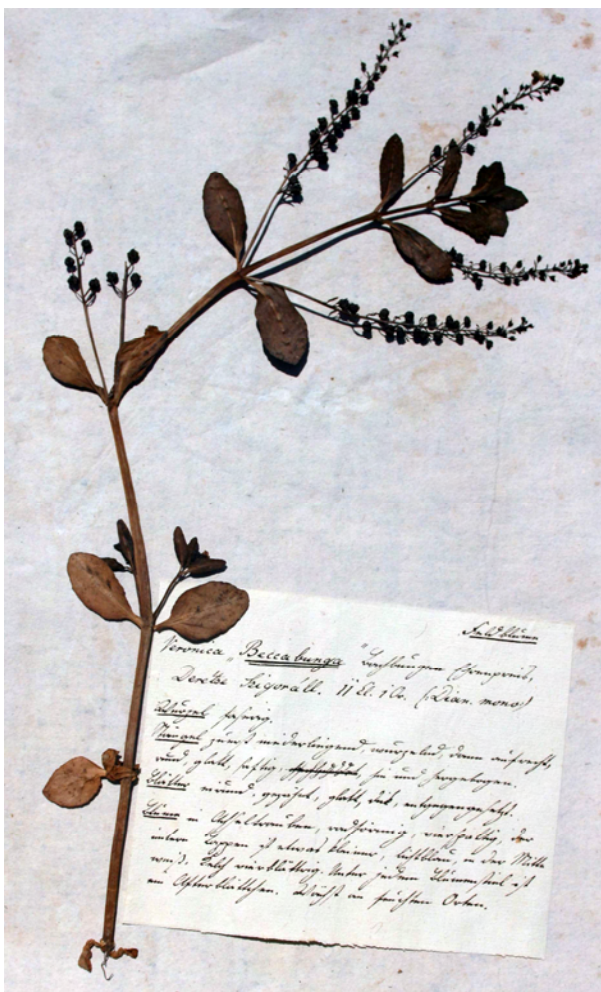 Feldblume
Veronica „Beccabunga“ Bachbungen Ehrenpreis,
Deretze Szigoráll. II Kl. 1 Or. (:Dian. mono:)
Wurzel fasrig.
Stängel zuerst niederliegend, wurzelnd, dann aufrecht,
rund, glatt, saftig, hin und hergebogen.
Blätter eirund, gezähnt, glatt, dick, entgegengesetzt.
Blume in Achseltrauben, radförmig, vierspaltig, der
untere Lappen ist etwas kleiner, lichtblau, in der Mitte
weiß. Kelch vierblättrig. Unter jedem Blumenstiel ist
ein Afterblättchen. Wächst an feuchten Orten.